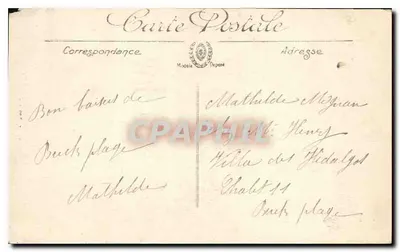 Carte Postale
Correspondance
Adresse
Bon baiser de
Berck plage
Mathilde
Mathilde
Henry
Villa des Hidalgos
Chalet 11
Berck plage
CPAPHIL